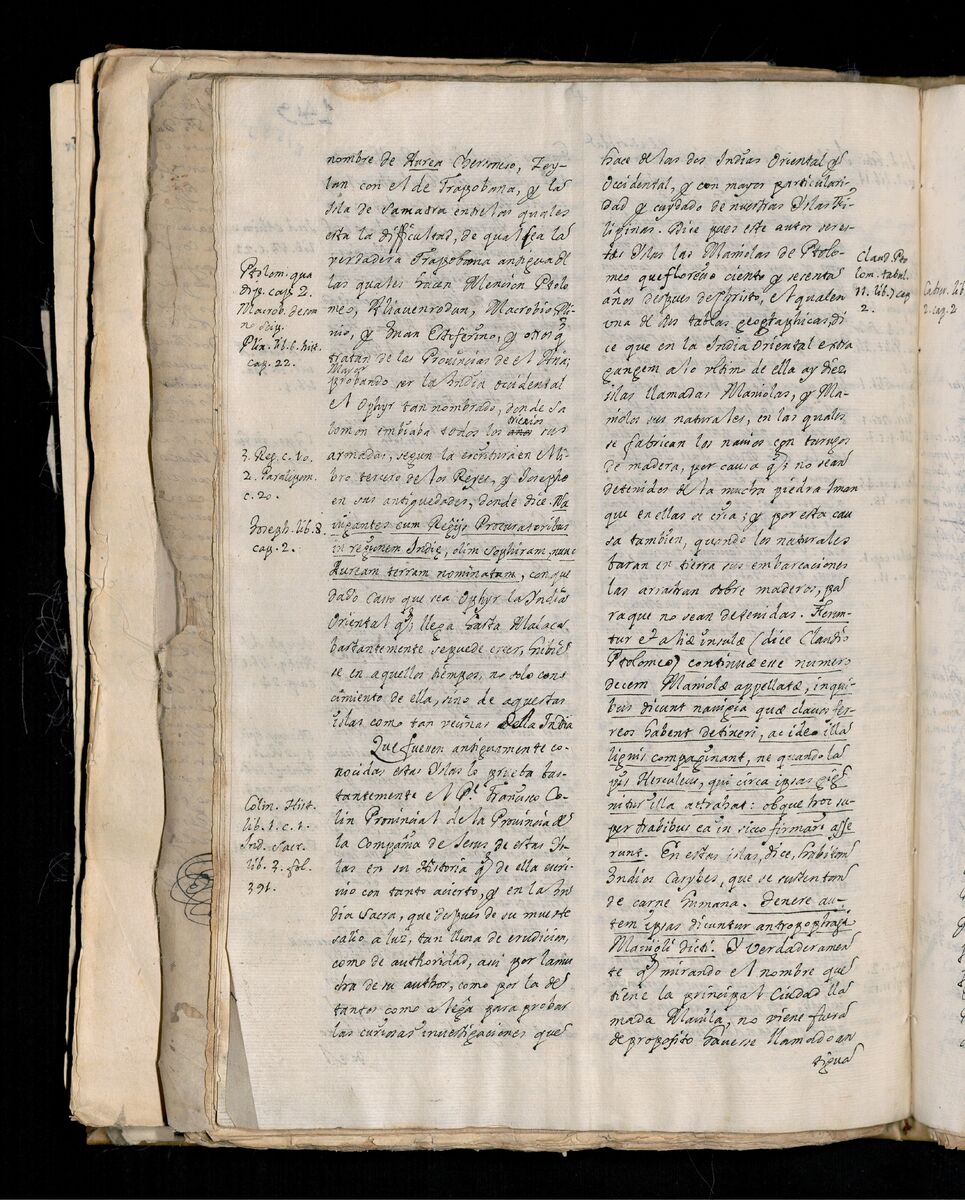 nombre de Aurea Chersoneso, Zey-
lan con el de Trapobana, y la
Isla de Samatra entre las quales
esta la difficultad, de qual sea la
verdadera Trapobana antigua de
las quales hacen Mencion Ptolo
meo,
Macrobio Pli
nio, y Juan Esteferino, y otros q̃
tratan de las Provincias de el Asia
Mayor
probando ser la India occidental
el Ophyr tan nombrado, donde Sa
lomon embiaba todos los años sus
armadas, segun la escritura en el li
bro tercero de los Reyes, y Josepho
en sus antiguedades, donde dice. Na
vigantes cum Regijs Procuratoribus
in regionem Indię, olim Sophiram, nunc
Auream terram nominatam, con que
dado caso que sea Ophyr la India
Oriental q̃ llega hasta Malaca,
bastantemente se puede creer, hubie
se en aquellos tiempos, no solo cono
cimiento de ella, sino de aquestas
islas como tan vecinas della India
Que fuesen antiguamente co-
nocidas estas Yslas lo prueba bas-
tantemente el P.e Francisco Co
lin Provincial de la Provincia de
la Compañia de Jesus de estas Is
las en su Historia q̃ de ella escri-
vio con tanto acierto, y en la In
dia Sacra, que despues de su muerte
salio a luz, tan llena de erudicion,
como de authoridad, assi por la mu
cha de su author, como por la de
tantos como alega para probar
las curiosas investigaciones que
Ptolom. qua
drip. cap. 2.
Macrob. de som
no
Plin. lib. 6. hist.
cap. 22.
3. Reg. c. 10.
2. Paralipom.
c. 20.
Joseph. lib. 8.
cap. 2.
Colin. Hist.
lib. 1. c. 1.
Ind. Sacr.
lib. 3. fol.
391.
hace de las dos Indias Oriental y
Occidental, y con mayor particulari-
dad y cuydado de nuestras Yslas Fi-
lipinas. Dice pues este autor ser es-
tas Yslas las Maniolas de Ptolo-
meo que florecio ciento y sesenta
años despues de Christo, el qual en
una de sus tablas geographicas, di
ce que en la India Oriental extra
gangem a lo ultimo de ella ay diez
islas llamadas Maniolas, y Ma-
niolos sus naturales, en las quales
se fabrican los navios con tarugos
de madera, por causa q̃ no sean
detenidos de la mucha piedra Iman
que en ellas se cria; y por esta cau
sa tambien, quando los naturales
baran en tierra sus embarcaciones
las arrastran sobre maderos, pa
ra que no sean detenidas. Ferun-
tur et aliæ insulæ (dice Claudio
Ptolomeo) continuæ esse numero
decem Maniolæ appellatæ, in qui
bus dicunt navigia quæ clavos fer-
reos habent detineri, ac ideo illa
lignis compaginant, ne quando la
pis Herculeus, qui circa ipsas gig
nitur illa attrahat: ob que hoc su
per trabibus ea in sicco firmari asse
runt. En estas islas, dice, habitan
Indios Carybes, que se sustentan
de carne humana. Genere au-
tem ipsas dicuntur antropophagi
Manioli dicti. Y verdaderamen
te q̃ mirando el nombre que
tiene la principal Ciudad lla
mada Manila, no viene fuera
de proposito haverse llamado an
tigua
Claud. Pto
lom. tabul.
11. lib. 7 cap
2.
2. cap. 2